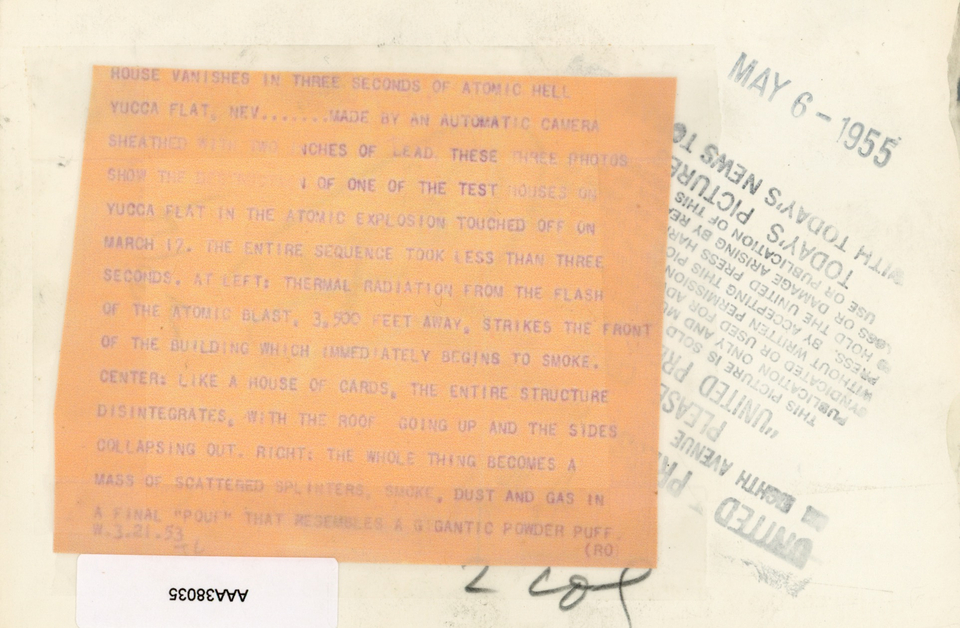 HOUSE VANISHES IN THREE SECONDS OF ATOMIC HELL
YUCCA FLAT, NEV.......MADE BY AN AUTOMATIC CAMERA
SHEATHED WITH TWO INCHES OF LEAD, THESE THREE PHOTOS
SHOW THE OF ONE OF THE TEST HOUSES ON
YUCCA FLAT IN THE ATOMIC EXPLOSION TOUCHED OFF ON
MARCH 17. THE ENTIRE SEQUENCE TOOK LESS THAN THREE
SECONDS. AT LEFT: THERMAL RADIATION FROM THE FLASH
OF THE ATOMIC BLAST, 3,500 FEET AWAY, STRIKES THE FRONT
OF THE BUILDING WHICH IMMEDIATELY BEGINS TO SMOKE.
CENTER: LIKE A HOUSE OF CARDS, THE ENTIRE STRUCTURE
DISINTEGRATES, WITH THE ROOF GOING UP AND THE SIDES
COLLAPSING OUT. RIGHT: THE WHOLE THING BECOMES A
MASS OF SCATTERED SPLINTERS, SMOKE, DUST AND GAS IN
A FINAL "POUF" THAT RESEMBLES A GIGANTIC POWDER PUFF.
W.3.21.53
(RO)
MAY 6-1955
UNITED
EIGHTH AVENUE
PLEASE
"UNITED
THIS PICTURE IS SOLD
PUBLICATION ONLY AND
SYNDICATED OR USED FOR
WITHOUT WRITTEN PERMISSION
PRESS. BY ACCEPTING THIS
HOLD THE UNITED PRESS
LOSS OR DAMAGE ARISING BY
USE OR PUBLICATION OF THIS
TODAY'S PICTURE
WITH TODAY'S NEWS
2 col
AAA38035